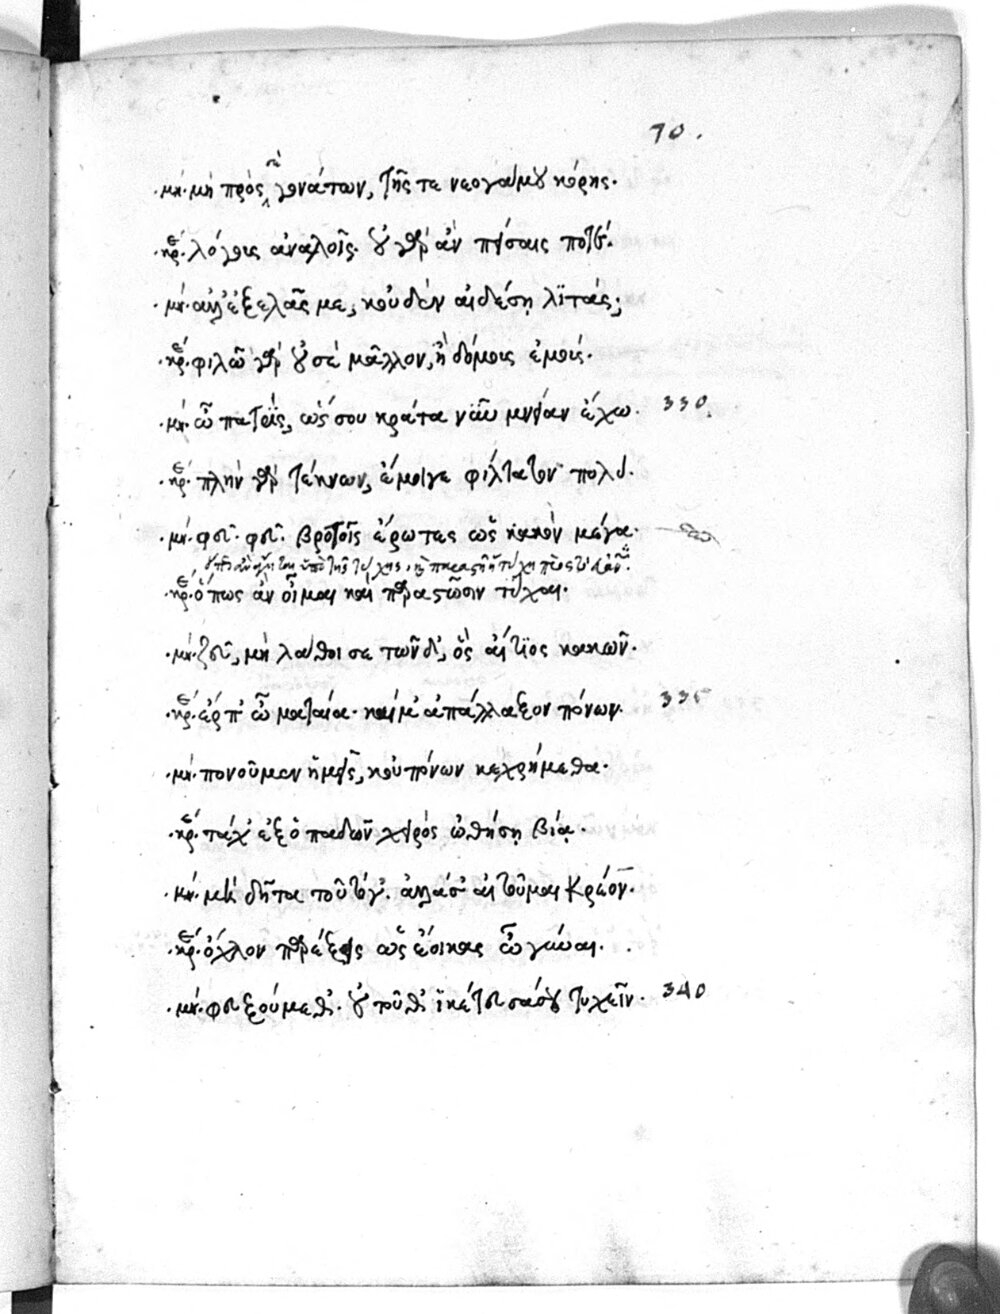 70.
·μη· μὴ πρός σε γονάτων, τῆς τε νεογάμου κόρης·
·κρέ· λόγους ἀναλοῖς· οὐ γὰρ ἂν πείσαις ποτέ·
·μη· ἀλλ' ἐξελᾷς με, κοὐδὲν αἰδέσῃ λιτάς;
·κρέ· φιλῶ γὰρ οὐ σὲ μᾶλλον, ἢ δόμοις ἐμοῖς·
·μη· ὦ πατρίς, ὥς σου κάρτα νῦν μνείαν ἔχω· 330.
·κρέ· πλὴν γὰρ τέκνων, ἔμοιγε φίλτατον πολύ·
·μη· φεῦ· φεῦ· βροτοῖς ἔρωτες ὡς κακὸν μέγα·
·κρέ· ὅπως ἂν οἶμαι καὶ παραστῶσιν τύχαι·
·μη· ζεῦ, μὴ λάθοι σε τῶνδ', ὃς αἴτιος κακῶν·
·κρέ· ἕρπ' ὦ ματαία· καί μ' ἀπάλλαξον πόνων· 335
·μη· πονοῦμεν ἡμεῖς, κοὐ πόνων κεχρήμεθα·
·κρέ· τάχ' ἐξ ὀπαδῶν χειρὸς ὠθήσῃ βίᾳ·
·μη· μὴ δῆτα τοῦτό γ'· ἀλλά σ' αἰτοῦμαι Κρέον·
·κρέ· ὄχλον παρέξεις ὡς ἔοικας ὦ γύναι·
·μη· φευξούμεθ'· οὐ τοῦθ' ἱκέτευσα σοῦ τυχεῖν· 340